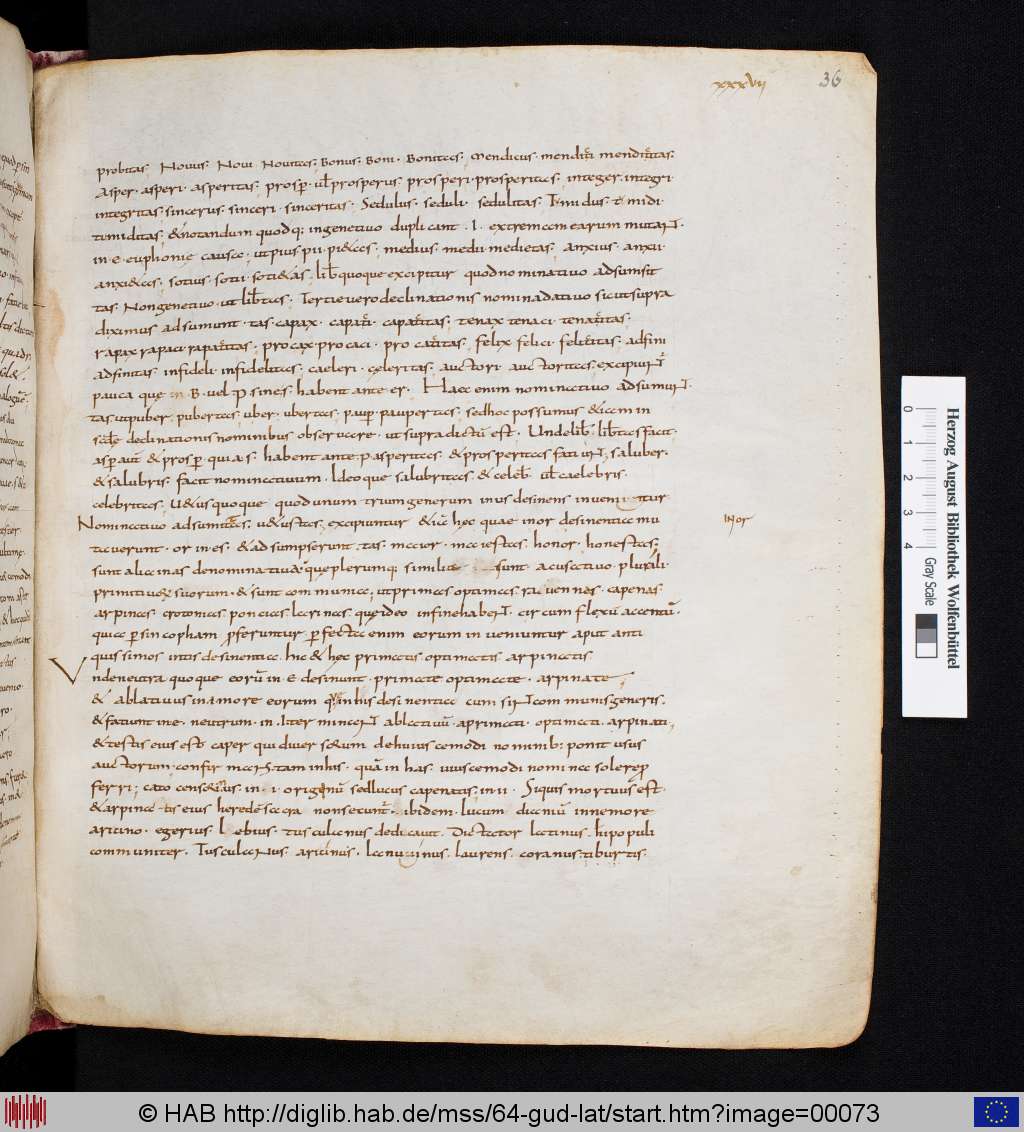 xxxvii 36
probitas. Novus. Novi. Novitas. Bonus. Boni. Bonitas. mendicus. mendici. mendicitas.
Asper. asperi. asperitas. prosp. vel prosperus. prosperi. prosperitas. integer. integri.
integritas. sincerus. sinceri. sinceritas. Sedulus. seduli. sedulitas. Timidus. timidi
timiditas. & notandum quod q; in genetivo duplicant .I. extremam earum mutant.
in .e. euphonie causa. ut pius pii. pi&as. medius. medii medietas. anxius. anxii
anxi&as. sotius. sotii. soti&as. lib quoque excipitur quod nominativo adsumsit
tas. Non genetivo. ut libtas. Tertie vero declinationis nomina dativo sicut supra
diximus adsumunt. tas. capax. capaci. capacitas. tenax tenaci. tenacitas.
rapax rapaci rapacitas. procax. procaci. procacitas. felix felici. felicitas. adfini
adfinitas. infideli. infidelitas. caeleri. celeritas. auctori. auctoritas. excipiunt
pauca que in .B. vel .P. sine s. habent ante er. Haec enim nominativo adsumunt.
tas. ut puber. pubertas. uber. ubertas. paup. paupertas. sed hoc possumus &iam in
scdae declinationis nominibus observare. ut supra dictū est. Unde lib. libtas facit.
asp aut & prosp. quia s. habent ante .p. asperitas. & prosperitas fatiunt. saluber.
& salubris. facit nominativum. Ideoque salubritas. & celeb. vel caelebris.
celebritas. V&us quoque quod unum trium generum in us desinens invenitur
Nominativo adsumit tas. v&ustas. excipiuntur &iā hec quae in or desinentia mu
taverunt. or in es. & adsumpserunt. tas. maior. maiestas. honor. honestas.
INor
sunt alia in as denominativa que plerumq; similia sunt acusativo plurali
primitivorum suorum. & sunt communia. ut primas optimas. ravennas. capenas.
arpinas. crotonias. poncias. larinas. que ideo in fine habent. circumflexū accentū.
quia p sincopham pferuntur pfecta enim eorum inveniuntur aput anti
quissimos in tis desinentia. hic & hec primatis optimatis arpinatis.
Unde neutra quoque eorū in .e. desinunt. primate optimate. arpinate.
& ablativus in a more eorum que in his desinentia cum sint communis generis.
& fatiunt in e. neutrum. in .I. terminant ablativū. a primati. optimati. arpinati.
& testis eius est caper qui diversarum de huiuscemodi nominib; ponit usus
auctorum confirmans. tam in his. quā in has. uiuscemodi nomina solere p
ferri; cato censorius. in .i. originū sed lucus capenatis. in ii. Siquis mortuus est
& arpinatis eius heredē sacra non secunt. ibidem. lucum dianium in nemore
aricino. egerius l ebius. tusculanus dedicavit. Dictator latinus. hi populi
communiter. Tusculanus. aricinus. lanuvinus. laurens. coranus. tiburtis.
Herzog August Bibliothek Wolfenbüttel
0 1 2 3 4 Gray Scale
© HAB http://diglib.hab.de/mss/64-gud-lat/start.htm?image=00073